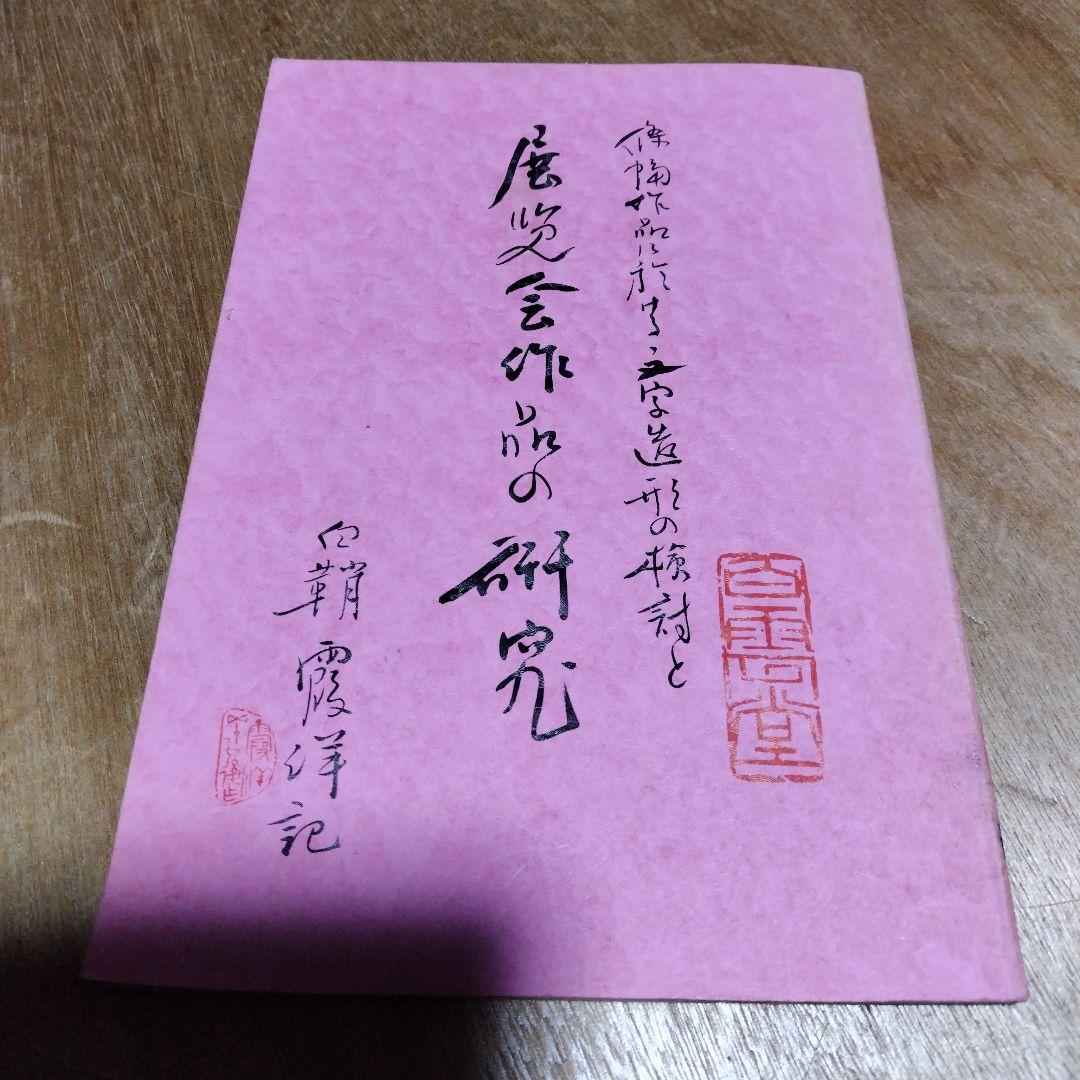 條幅作品に於ける文字造形の検討と
展覧会作品の研究
白鞘霞洋記